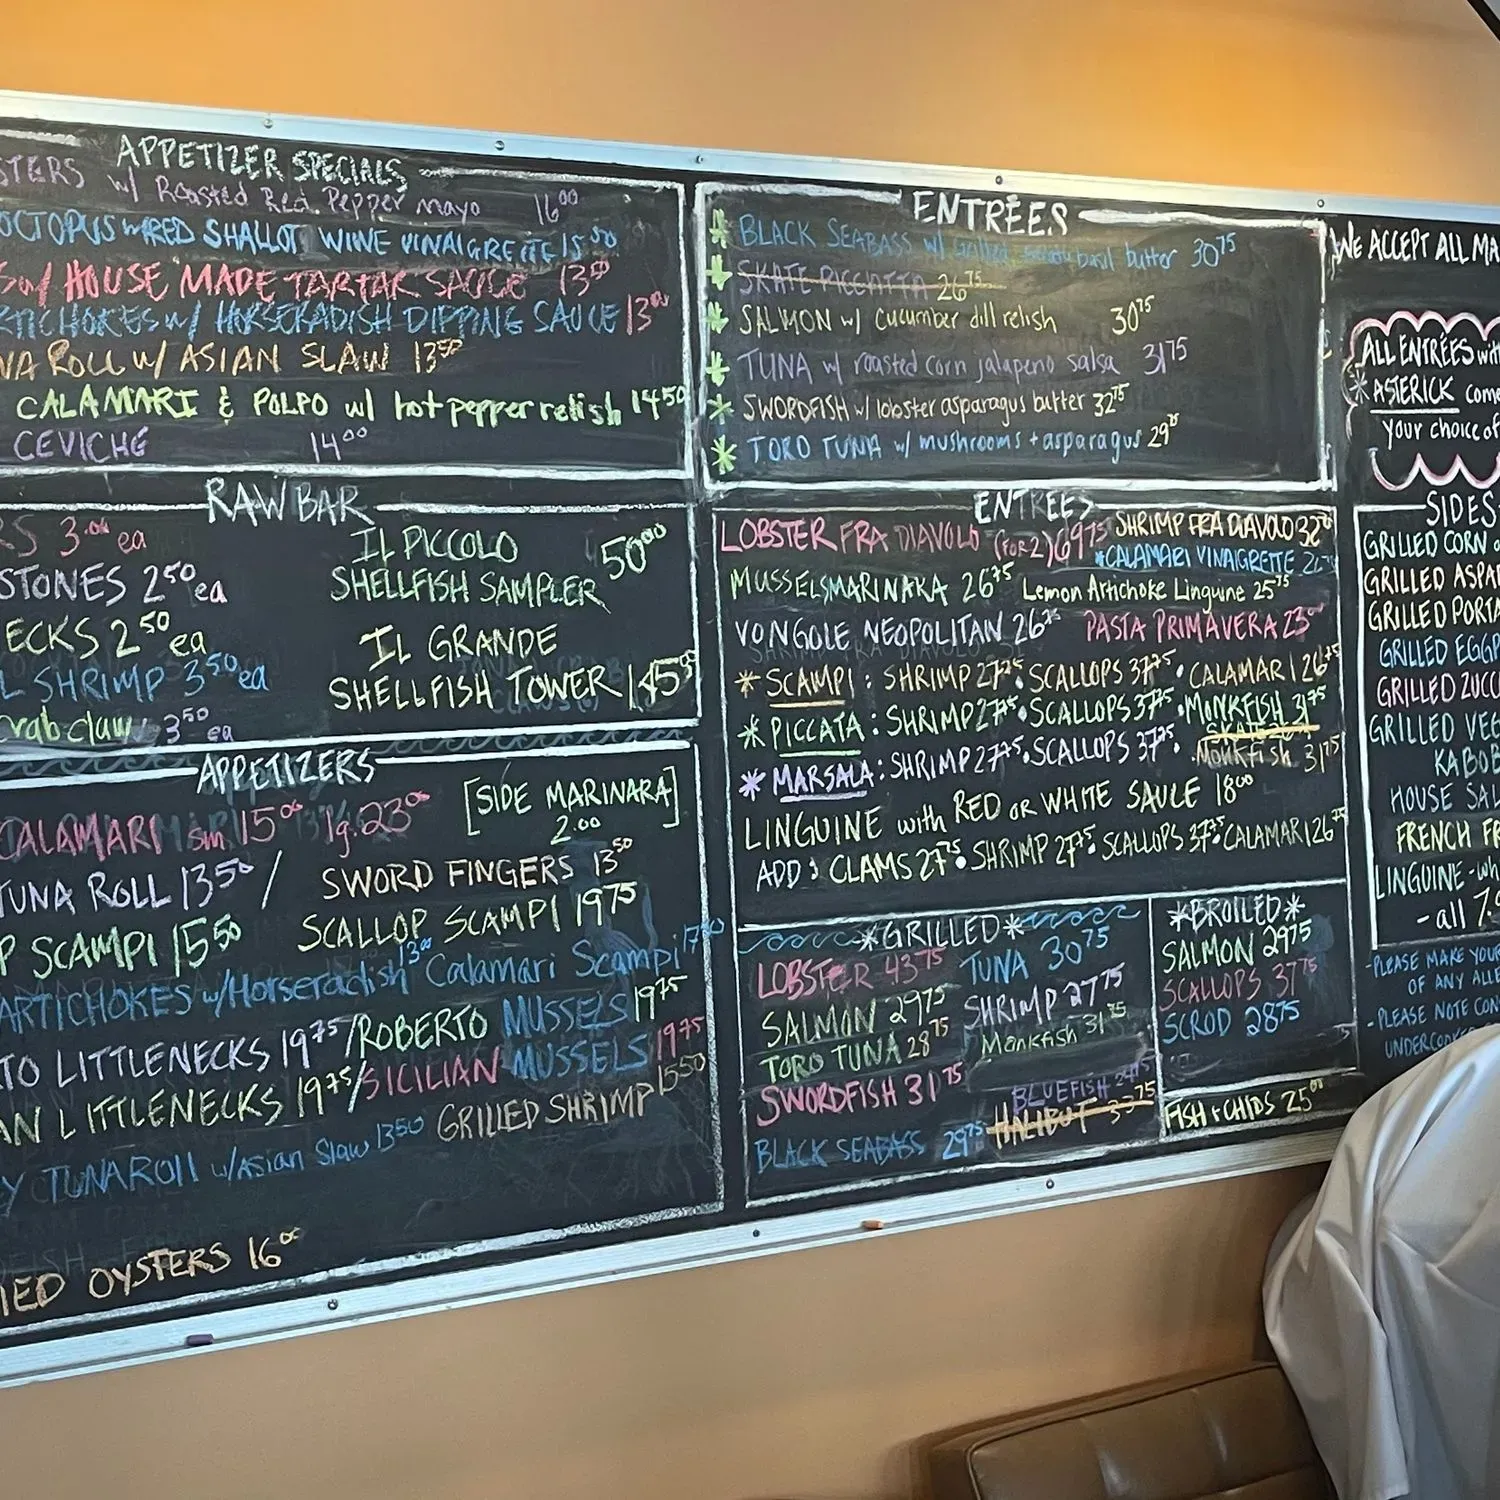 APPETIZER SPECIALS
STERS w/ Roasted Red Pepper mayo 16⁰⁰
OCTOPUS w/RED SHALLOT WINE VINAIGRETTE 15⁵⁰
w/ HOUSE MADE TARTAR SAUCE 13⁵⁰
RTICHOKES w/ HORSERADISH DIPPING SAUCE 13⁰⁰
NA ROLL w/ ASIAN SLAW 13⁵⁰
CALAMARI & POLPO w/ hot pepper relish 14⁵⁰
CEVICHE 14⁰⁰
RAW BAR
RS 3.⁰⁰ ea
STONES 2⁵⁰ ea
ECKS 2⁵⁰ ea
L SHRIMP 3⁵⁰ ea
crab claw 3⁵⁰ ea
IL PICCOLO
SHELLFISH SAMPLER 50⁰⁰
IL GRANDE
SHELLFISH TOWER 145⁰⁰
APPETIZERS
CALAMARI sm 15⁰⁰ lg. 23⁰⁰ [SIDE MARINARA]
2.00
TUNA ROLL 13⁵⁰ / SWORD FINGERS 13⁵⁰
P SCAMPI 15⁵⁰ SCALLOP SCAMPI 19⁷⁵
ARTICHOKES w/Horseradish 13⁰⁰ Calamari Scampi
TO LITTLENECKS 19⁷⁵/ROBERTO MUSSELS 19⁷⁵
AN LITTLENECKS 19⁷⁵/SICILIAN MUSSELS 19⁷⁵
Y TUNA ROLL w/Asian Slaw 13⁵⁰ GRILLED SHRIMP 15⁵⁰
IED OYSTERS 16⁰⁰
ENTRÉES
* BLACK SEABASS w/ basil butter 30⁷⁵
* SKATE PICCATTA 26⁷⁵
* SALMON w/ cucumber dill relish 30⁷⁵
* TUNA w/ roasted corn jalapeno salsa 31⁷⁵
* SWORDFISH w/ lobster asparagus butter 32⁷⁵
* TORO TUNA w/ mushrooms + asparagus 29⁷⁵
ENTREES
LOBSTER FRA DIAVOLO (for 2) 69⁷⁵ SHRIMP FRA DIAVOLO
*CALAMARI VINAIGRETTE
MUSSELS MARINARA 26⁷⁵ Lemon Artichoke Linguine 25⁷⁵
VONGOLE NEOPOLITAN 26⁷⁵ PASTA PRIMAVERA 23⁰⁰
* SCAMPI: SHRIMP 27⁷⁵ • SCALLOPS 37⁷⁵ • CALAMARI 26⁷⁵
* PICCATA: SHRIMP 27⁷⁵ • SCALLOPS 37⁷⁵ • MONKFISH 31⁷⁵
* MARSALA: SHRIMP 27⁷⁵ • SCALLOPS 37⁷⁵ • Monkfish 31⁷⁵
LINGUINE with RED OR WHITE SAUCE 18⁰⁰
ADD: CLAMS 27⁷⁵ • SHRIMP 27⁷⁵ • SCALLOPS 37⁷⁵ • CALAMARI 26⁷⁵
*GRILLED*
LOBSTER 43⁷⁵
SALMON 29⁷⁵
TORO TUNA 28⁷⁵
SWORDFISH 31⁷⁵
BLACK SEABASS 29⁷⁵
TUNA 30⁷⁵
SHRIMP 27⁷⁵
Monkfish 31⁷⁵
BLUEFISH 24⁷⁵
HALIBUT 33⁷⁵
*BROILED*
SALMON 29⁷⁵
SCALLOPS 37⁷⁵
SCROD 28⁷⁵
FISH + CHIPS 25⁰⁰
WE ACCEPT ALL MA
ALL ENTRÉES with
* ASTERICK come
your choice of
SIDES
GRILLED CORN
GRILLED ASPA
GRILLED PORTA
GRILLED EGGP
GRILLED ZUCC
GRILLED VEG
KABOB
HOUSE SAL
FRENCH FR
LINGUINE - wh
- all 7.
- PLEASE MAKE YOUR
OF ANY ALLE
- PLEASE NOTE CON
UNDERCOOK